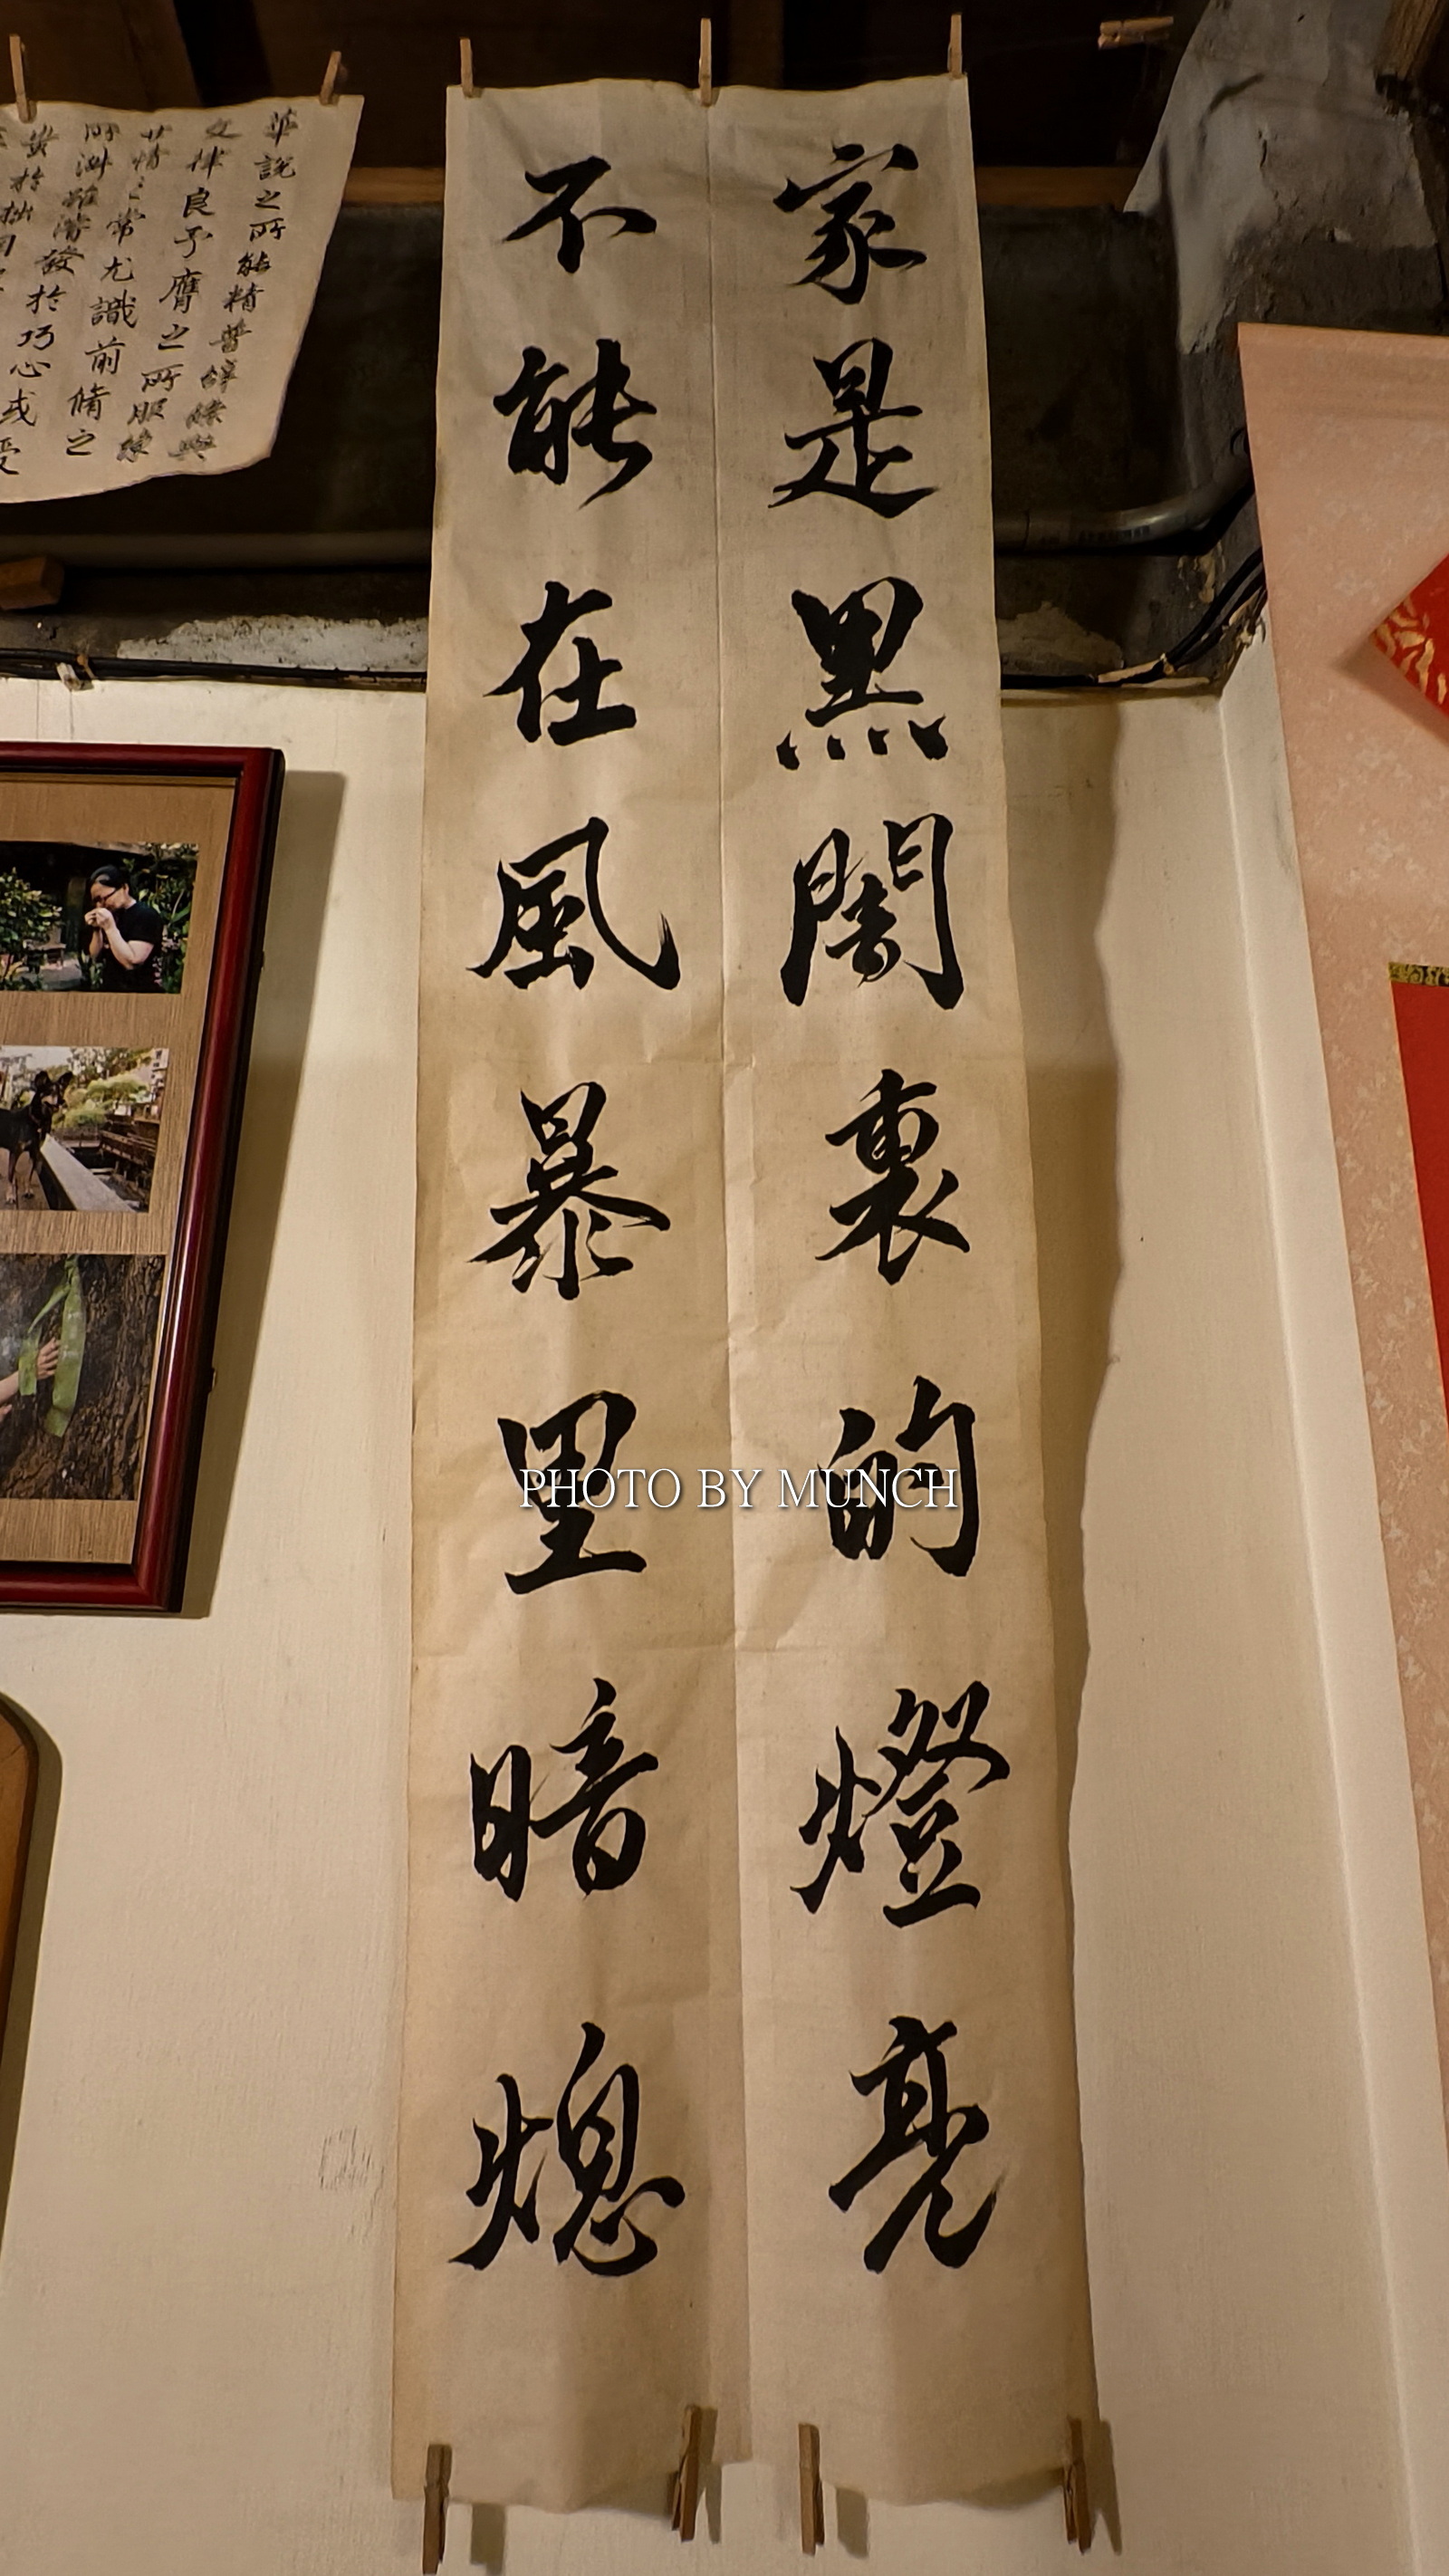 家是黑闇裏的燈亮
不能在風暴里暗熄
華說之所能精普辭條與
文律良予膺之所服練
世情之常尤識前脩之
所淑雖濬發於巧心或受
於拙
PHOTO BY MUNCH